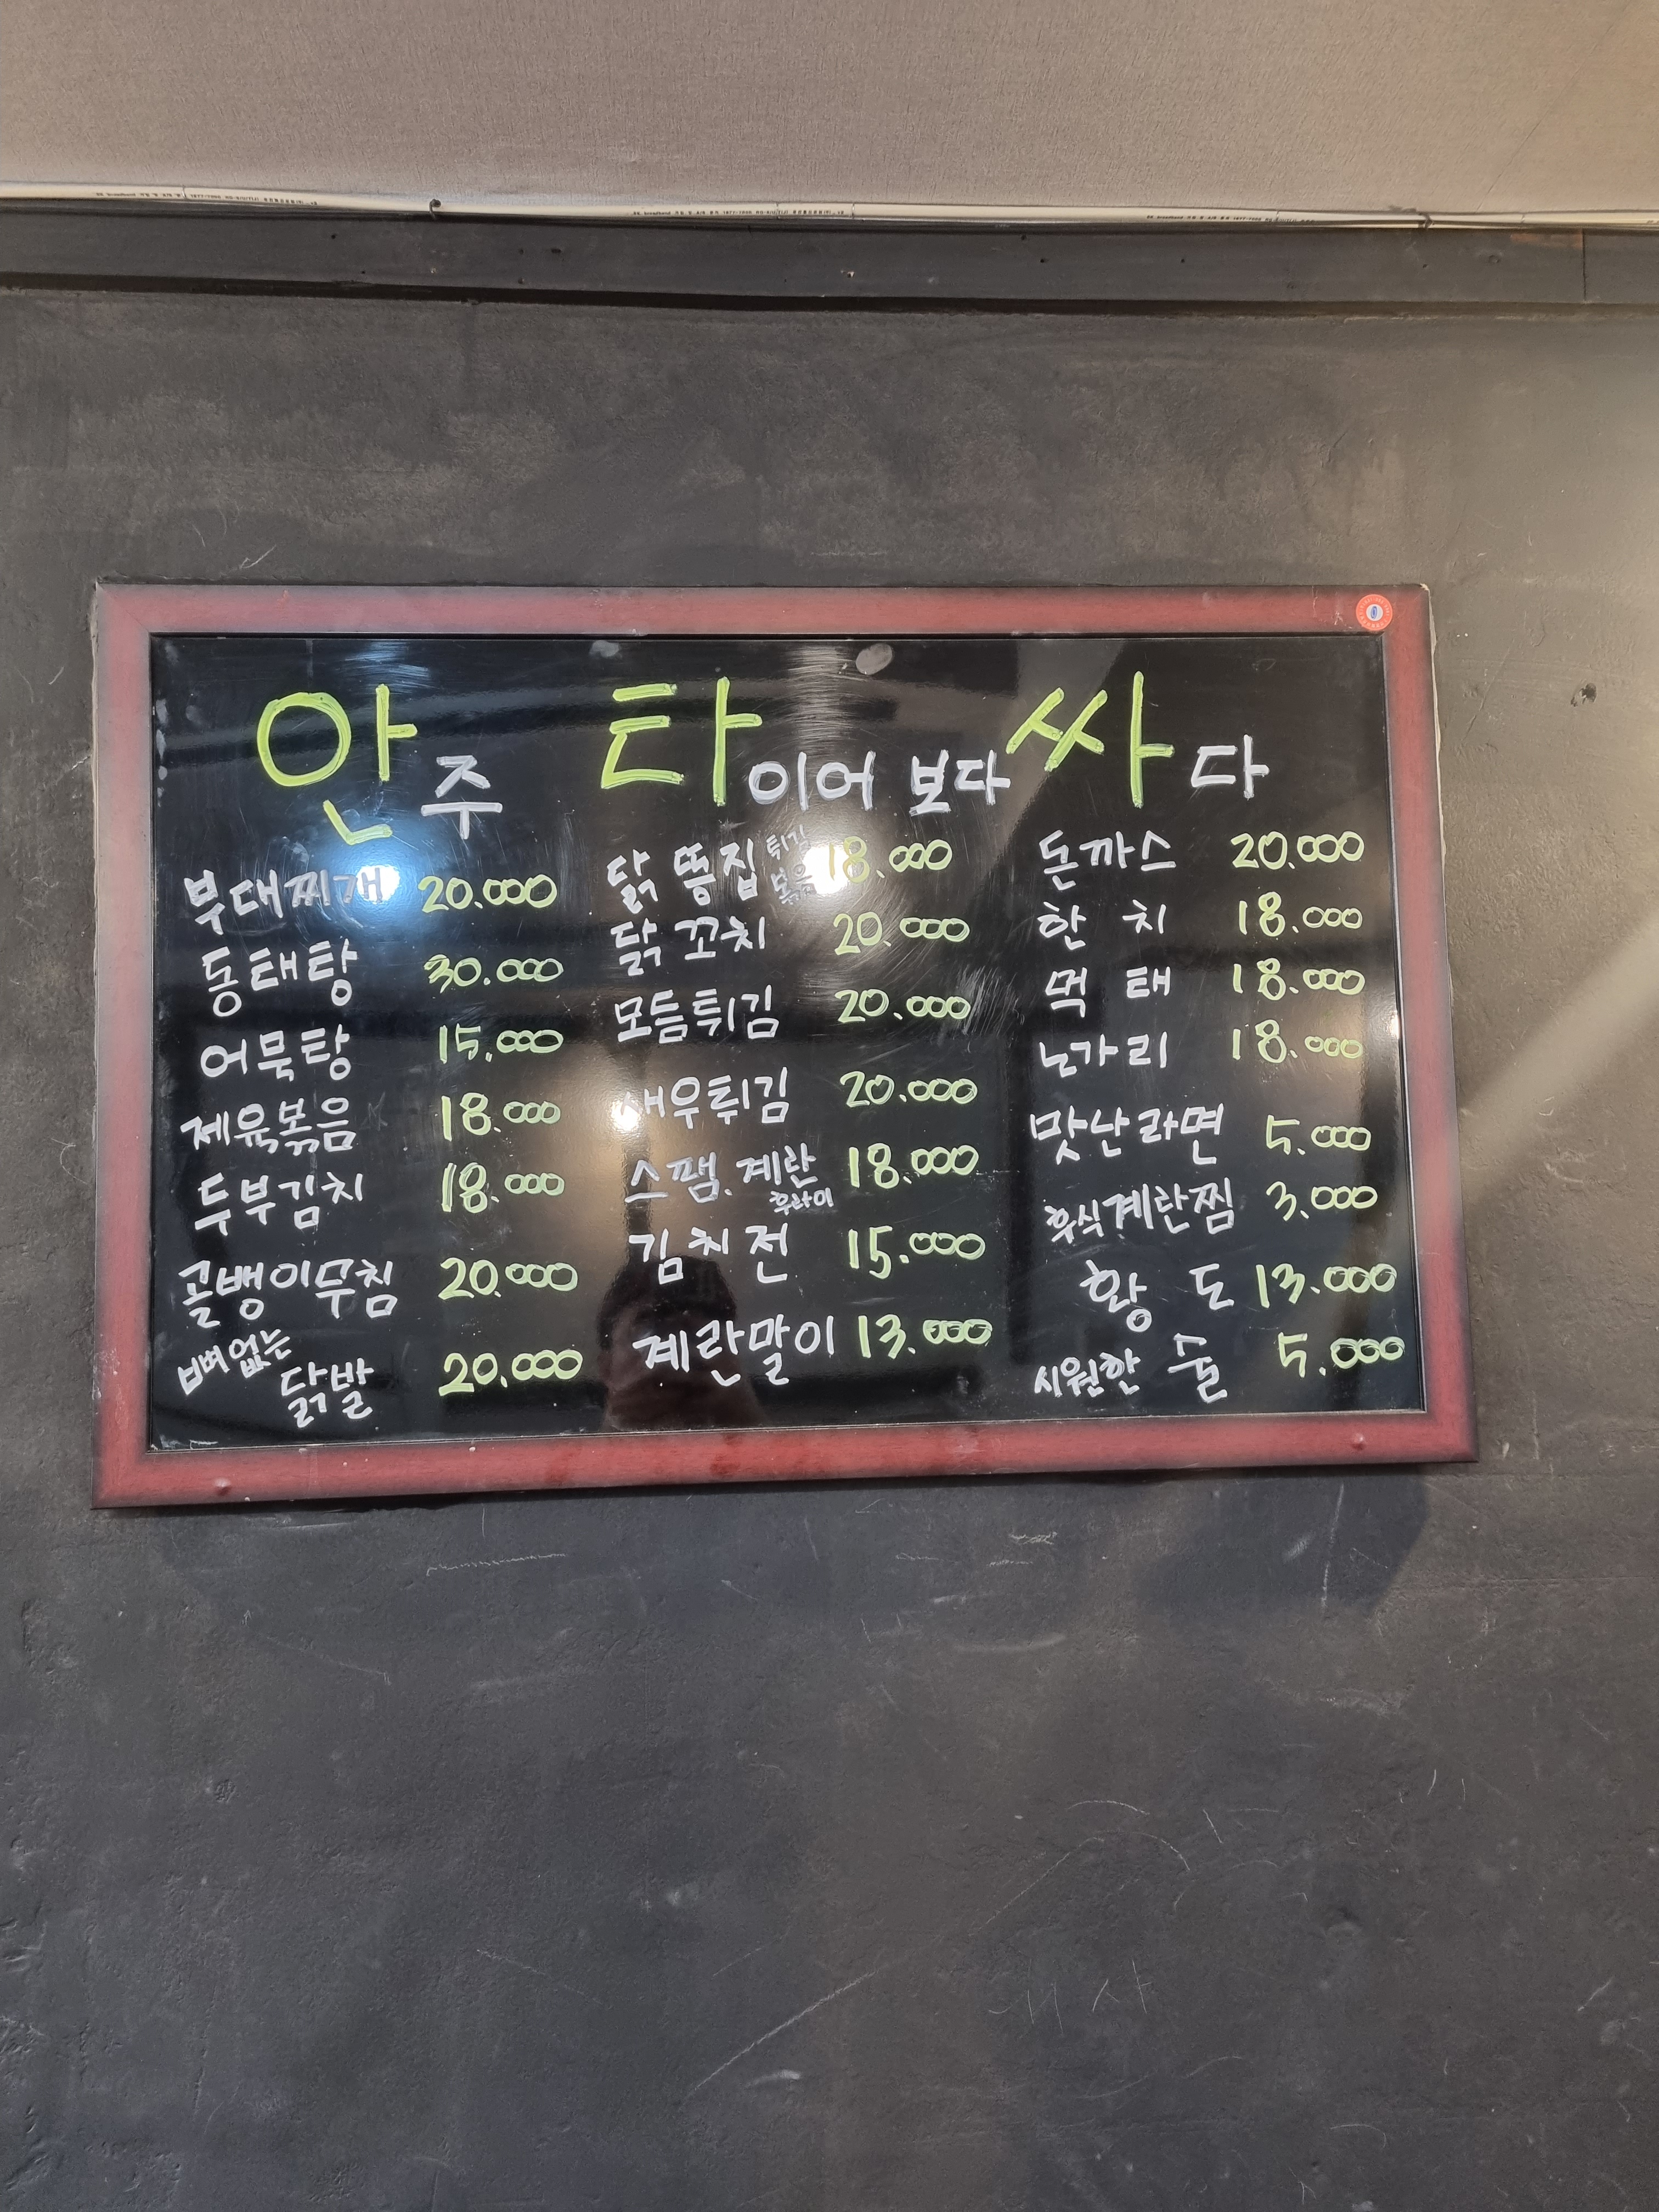 안주 타이어 보다 싸다
부대찌개 20.000
동태탕 30.000
어묵탕 15.000
제육볶음 18.000
두부김치 18.000
골뱅이무침 20.000
뼈없는 닭발 20.000
닭 똥집 튀김 볶음 18.000
닭꼬치 20.000
모듬튀김 20.000
새우튀김 20.000
스팸.계란 후라이 18.000
김치전 15.000
계란말이 13.000
돈까스 20.000
한 치 18.000
먹 태 18.000
노가리 18.000
맛난라면 5.000
후식계란찜 3.000
황 도 13.000
시원한 술 5.000